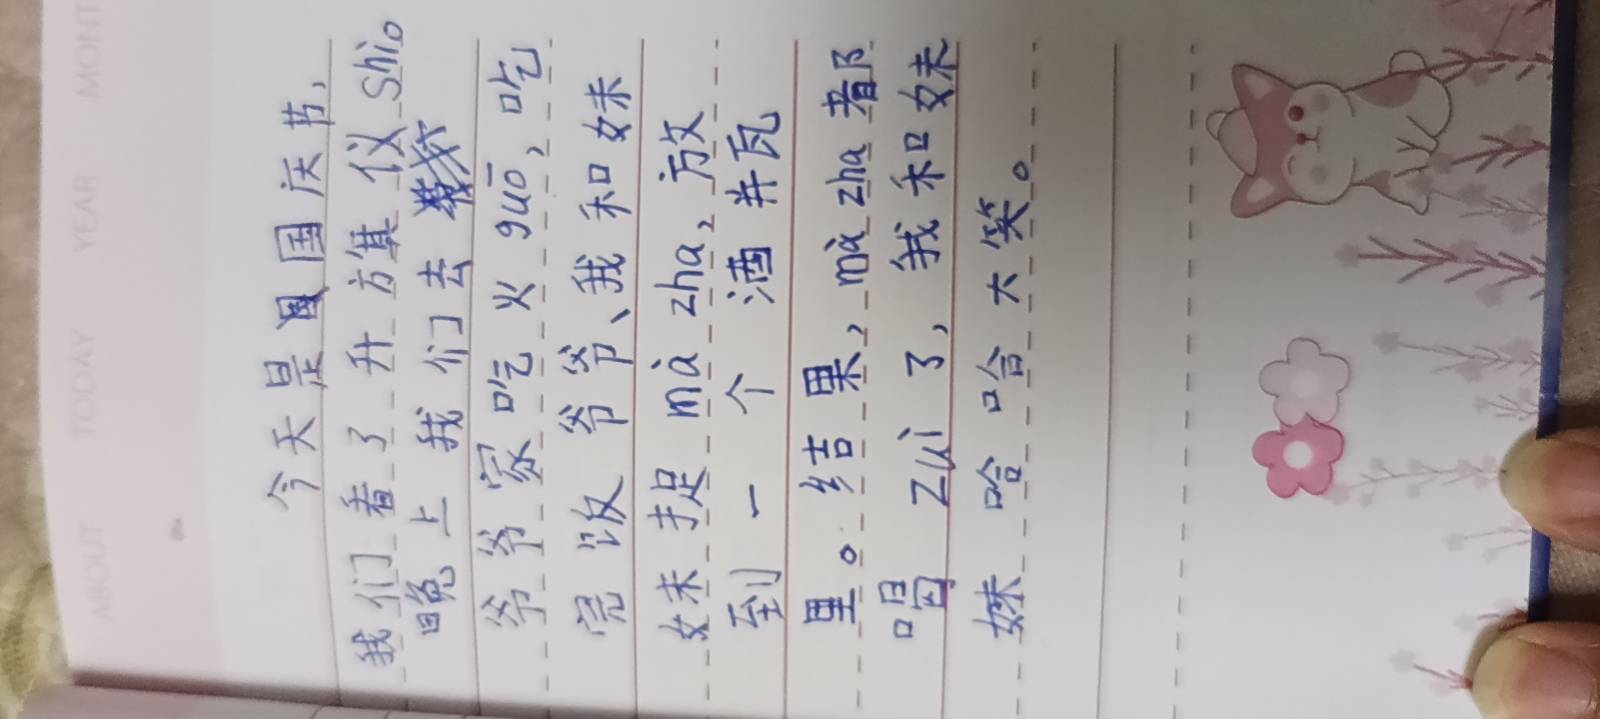 ABOUT TODAY YEAR MONT
今天是国国庆节、
我们看了升方箕仪shi。
晚上我们去
爷爷家吃火guō,吃
完饭爷爷、我和妹
妹捉mà zha,放
到一个酒井瓦
里。结果,mà zha都
喝zuì了,我和妹
妹哈哈大笑。